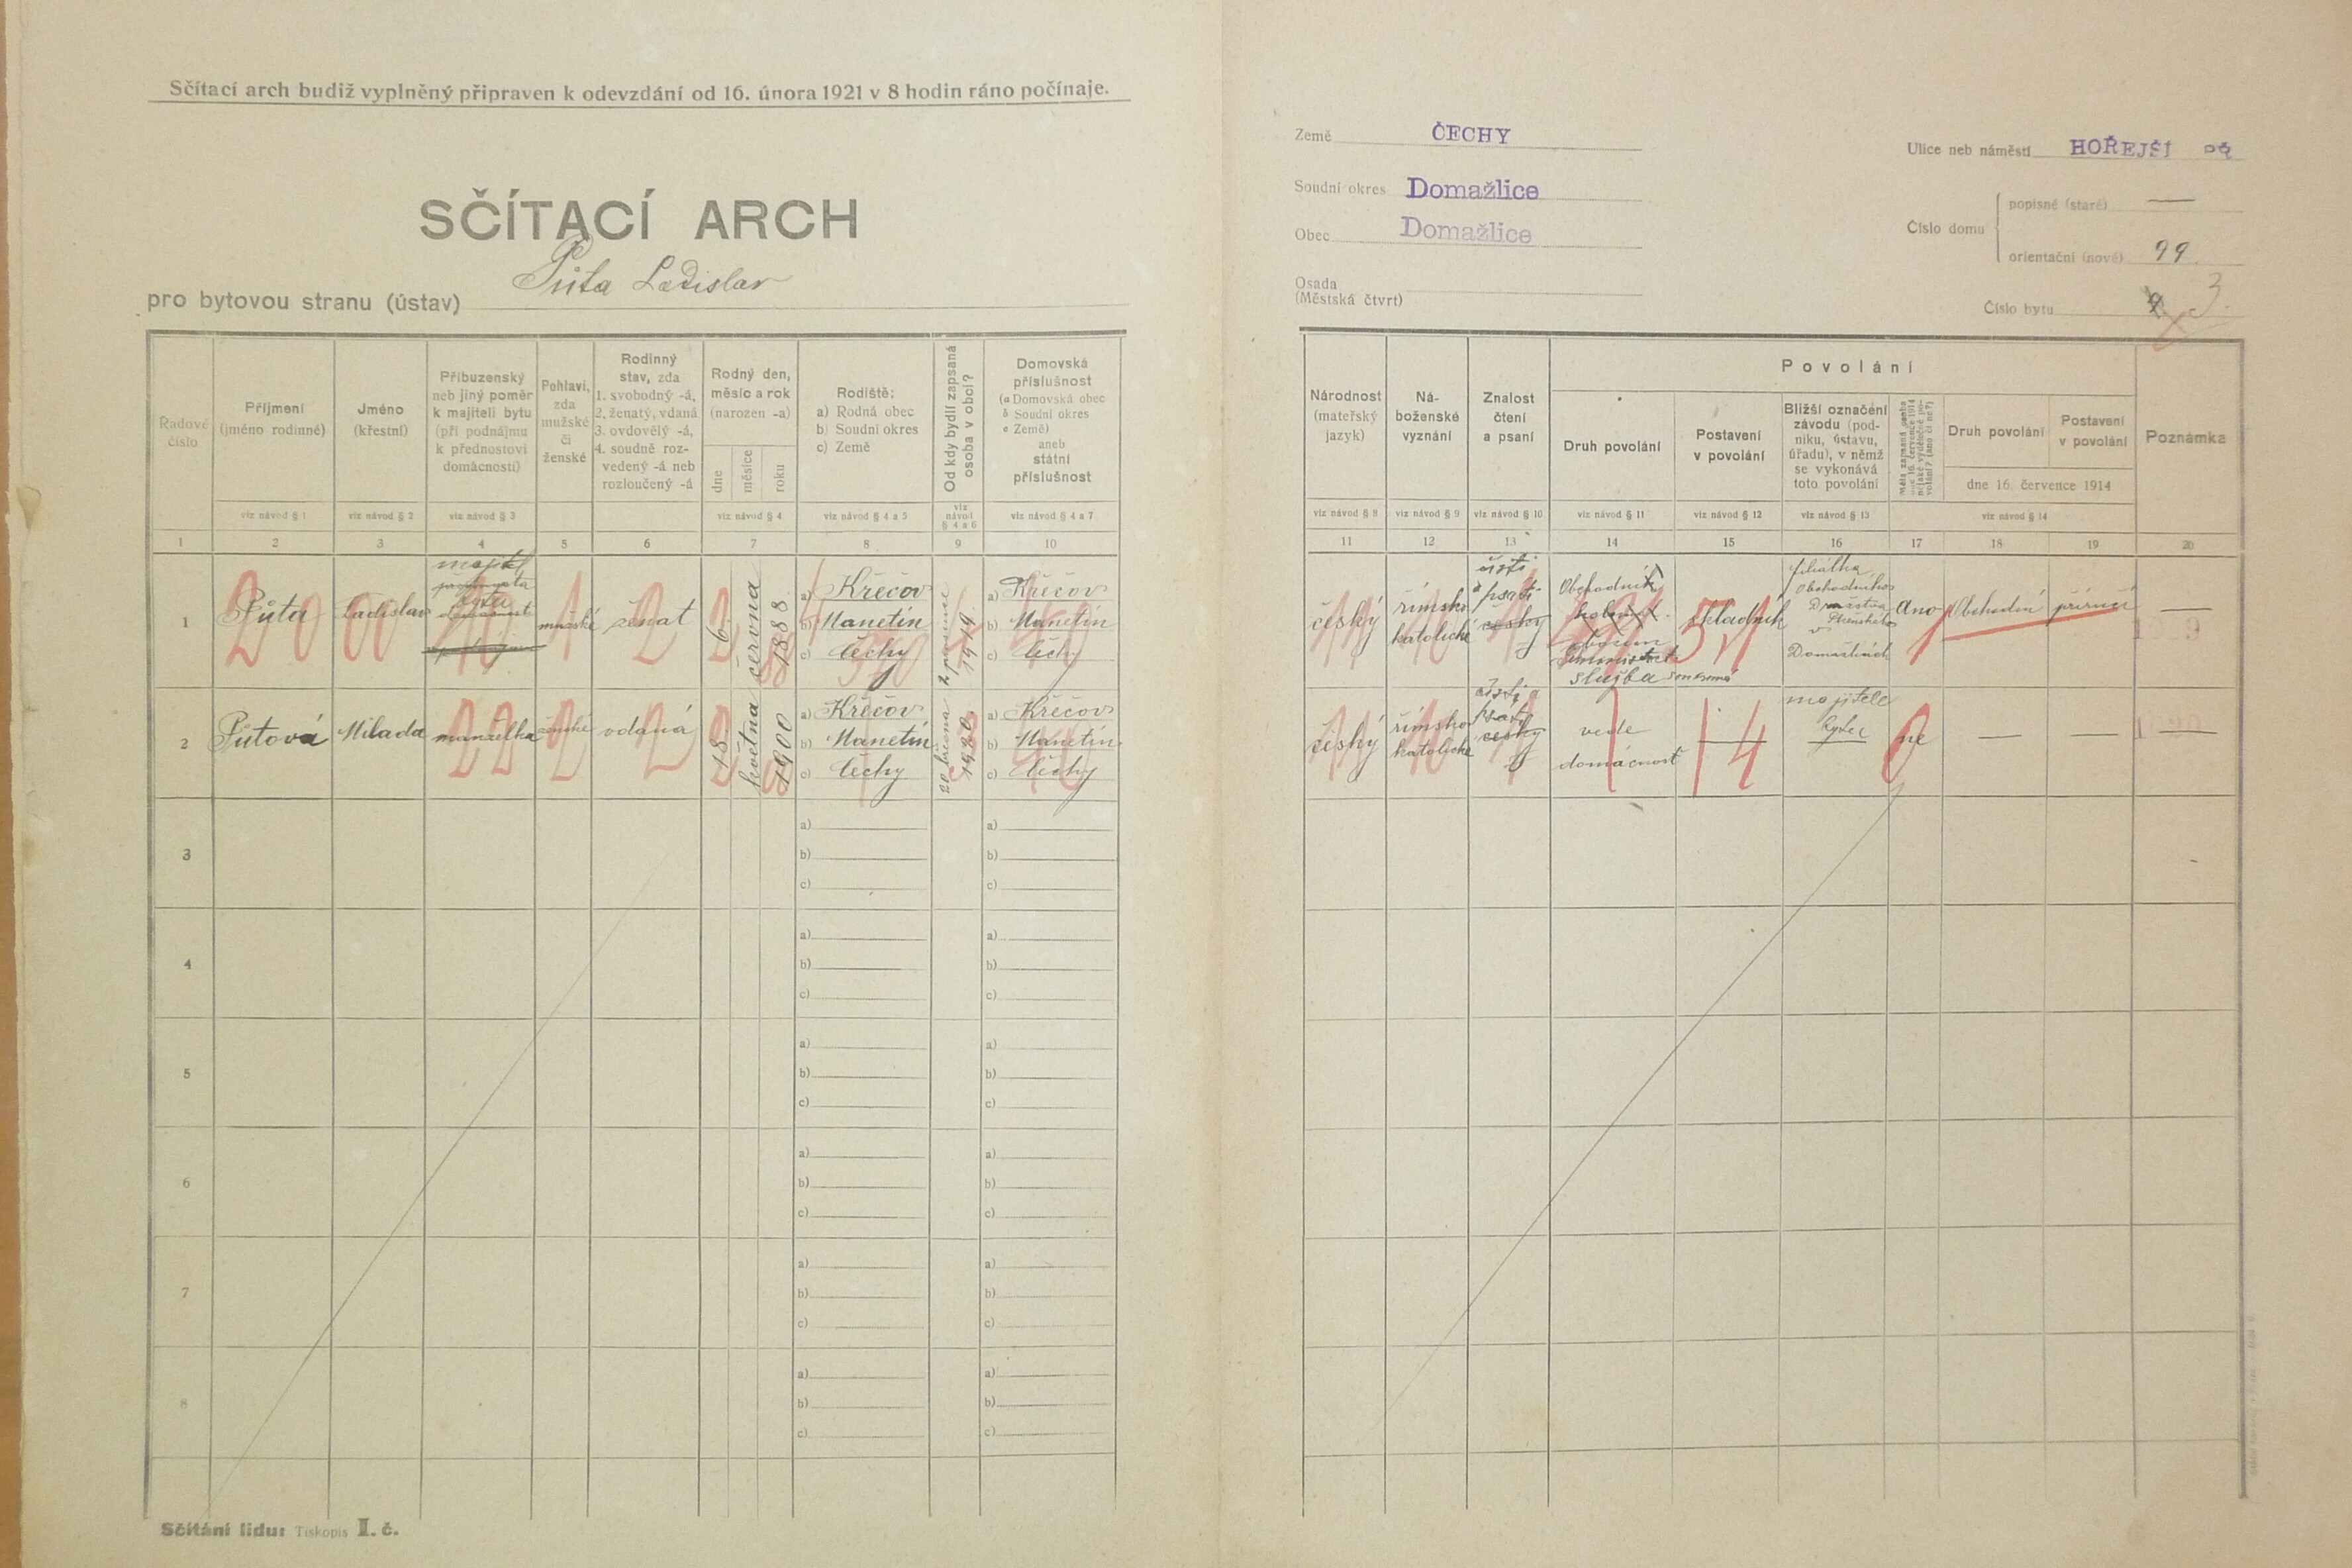 Sčítací arch budiž vyplněný připraven k odevzdání od 16. února 1921 v 8 hodin ráno počínaje.
SČÍTACÍ ARCH
pro bytovou stranu (ústav) Půta Ladislav
Země ČECHY
Soudní okres Domažlice
Obec Domažlice
Osada
(Městská čtvrt)
Ulice neb náměstí HOŘEJŠÍ
Číslo domu
popisné (staré) —
orientační (nové) 99
Číslo bytu 3.
Řadové
číslo
Příjmení
(jméno rodinné)
Jméno
(křestní)
Příbuzenský
neb jiný poměr
k majiteli bytu
(při podnájmu
k přednostovi
domácnosti)
Pohlaví,
zda
mužské
či
ženské
Rodinný
stav, zda
1. svobodný -á,
2. ženatý, vdaná
3. ovdovělý -á,
4. soudně roz-
vedený -á neb
rozloučený -á
Rodný den,
měsíc a rok
(narozen -a)
dne
měsíce
roku
Rodiště:
a) Rodná obec
b) Soudní okres
c) Země
Od kdy bydlí zapsaná
osoba v obci?
Domovská
příslušnost
(a Domovská obec
b Soudní okres
c Země)
aneb
státní
příslušnost
viz návod § 1
viz návod § 2
viz návod § 3
viz návod § 4
viz návod § 4 a 5
viz
návod
§ 4 a 6
viz návod § 4 a 7
1 2 3 4 5 6 7 8 9 10
Národnost
(mateřský
jazyk)
Ná-
boženské
vyznání
Znalost
čtení
a psaní
Povolání
Druh povolání
Postavení
v povolání
Bližší označení
závodu (pod-
niku, ústavu,
úřadu), v němž
se vykonává
toto povolání
Druh povolání
Postavení
v povolání
dne 16. července 1914
Poznámka
viz návod § 8
viz návod § 9
viz návod § 10
viz návod § 11
viz návod § 12
viz návod § 13
viz návod § 14
11 12 13 14 15 16 17 18 19 20
1
Půta
Ladislav
majitel
bytu
mužské
ženat
6.
června
1888
a) Křečov
b) Manetín
c) Čechy
1919.
a) Křečov
b) Manetín
c) Čechy
český
římsko
katolické
čísti
a psáti
česky
Obchodník
služba soukromá
skladník
filiálka
Obchodního
Družstva
v
Domažlicích
Ano
Obchodní
příručí
—
2
Půtová
Milada
manželka
ženské
vdaná
18.
května
1900
a) Křečov
b) Manetín
c) Čechy
20 března
1920.
a) Křečov
b) Manetín
c) Čechy
český
římsko
katolické
čísti a
psáti
česky
vede
domácnost
—
majitele
bytu
ne
—
—
—
3
a)
b)
c)
a)
b)
c)
4
a)
b)
c)
a)
b)
c)
5
a)
b)
c)
a)
b)
c)
6
a)
b)
c)
a)
b)
c)
7
a)
b)
c)
a)
b)
c)
8
a)
b)
c)
a)
b)
c)
Sčítání lidu: Tiskopis I. č.